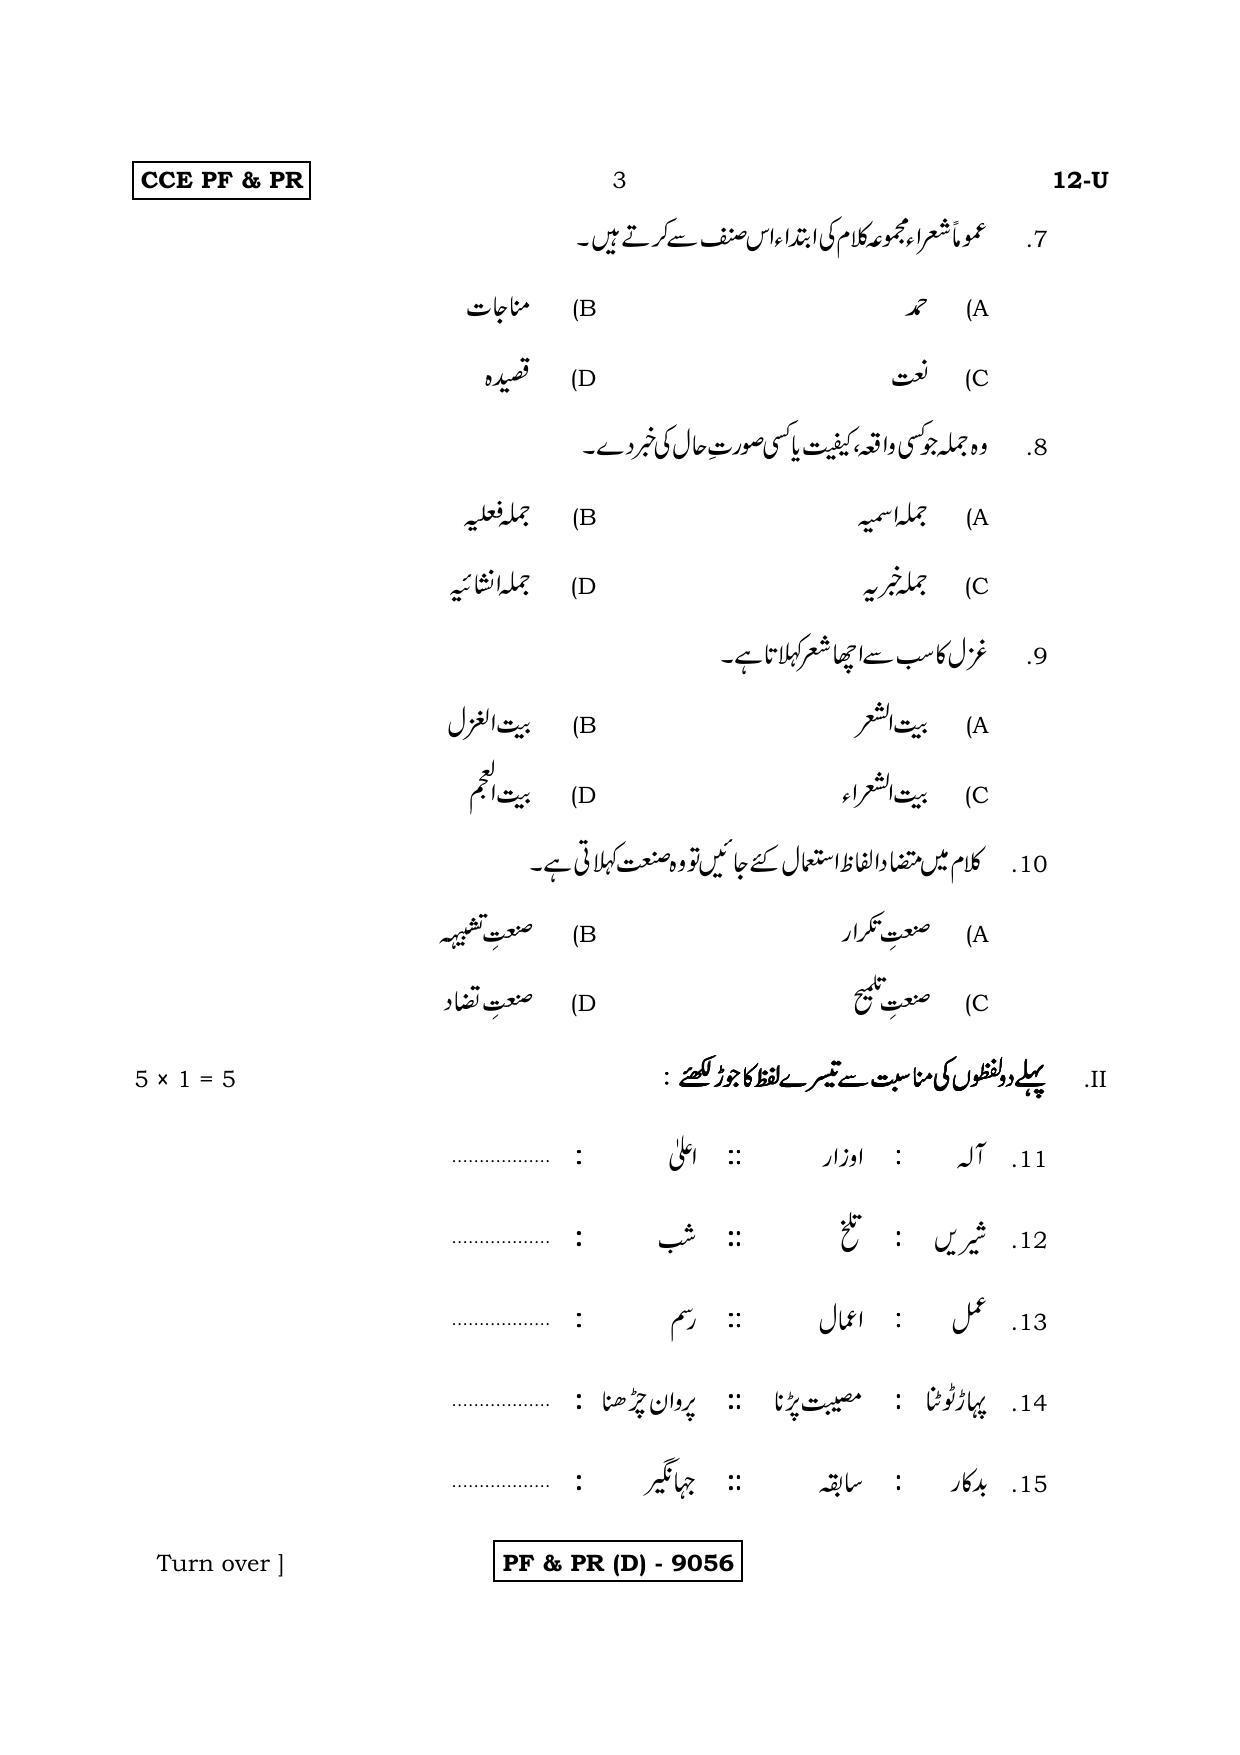 CCE PF & PR 3 12-U
7. عموماً شعراء مجموعہ کلام کی ابتداء اس صنف سے کرتے ہیں ۔
(A حمد (B مناجات
(C نعت (D قصیدہ
8. وہ جملہ جو کسی واقعہ، کیفیت یا کسی صورتِ حال کی خبر دے ۔
(A جملہ اسمیہ (B جملہ فعلیہ
(C جملہ خبریہ (D جملہ انشائیہ
9. غزل کا سب سے اچھا شعر کہلاتا ہے ۔
(A بیت الشعر (B بیت الغزل
(C بیت الشعراء (D بیت العجم
10. کلام میں متضاد الفاظ استعمال کئے جائیں تو وہ صنعت کہلاتی ہے ۔
(A صنعتِ تکرار (B صنعتِ تشبیہہ
(C صنعتِ تلمیح (D صنعتِ تضاد
II. پہلے دو لفظوں کی مناسبت سے تیسرے لفظ کا جوڑ لکھئے : 5 × 1 = 5
11. آلہ : اوزار :: اعلیٰ : ..................
12. شیریں : تلخ :: شب : ..................
13. عمل : اعمال :: رسم : ..................
14. پہاڑ ٹوٹنا : مصیبت پڑنا :: پروان چڑھنا : ..................
15. بدکار : سابقہ :: جہانگیر : ..................
PF & PR (D) - 9056 Turn over ]